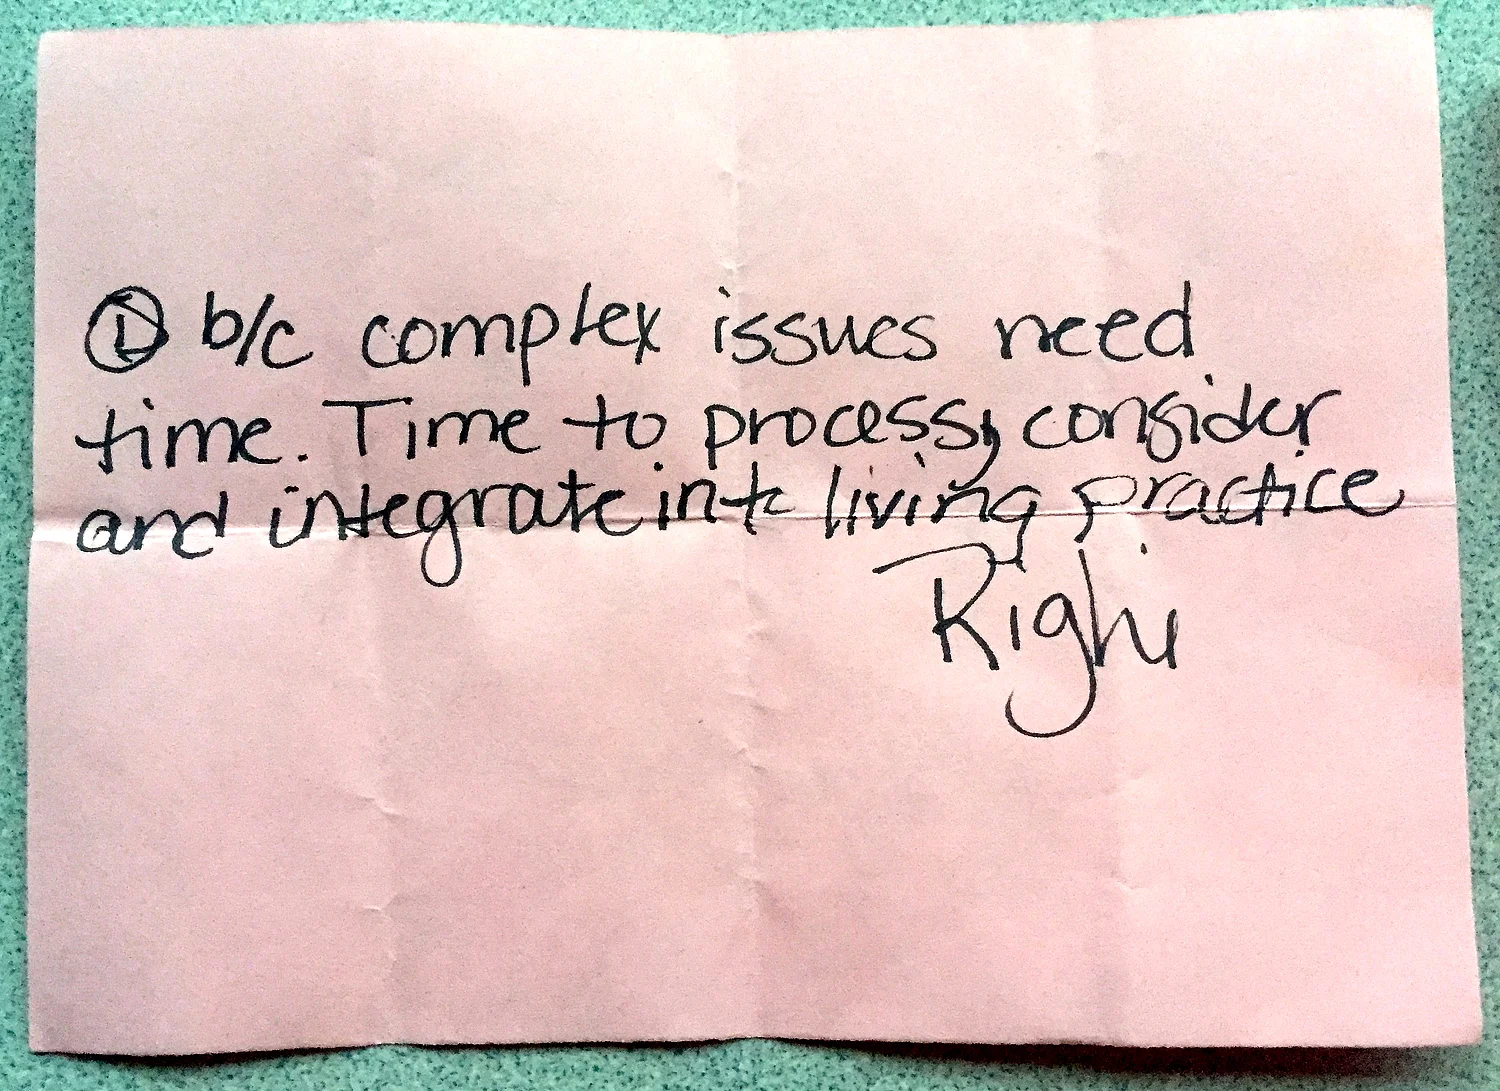 ① b/c complex issues need
time. Time to process, consider
and integrate into living practice
Righi